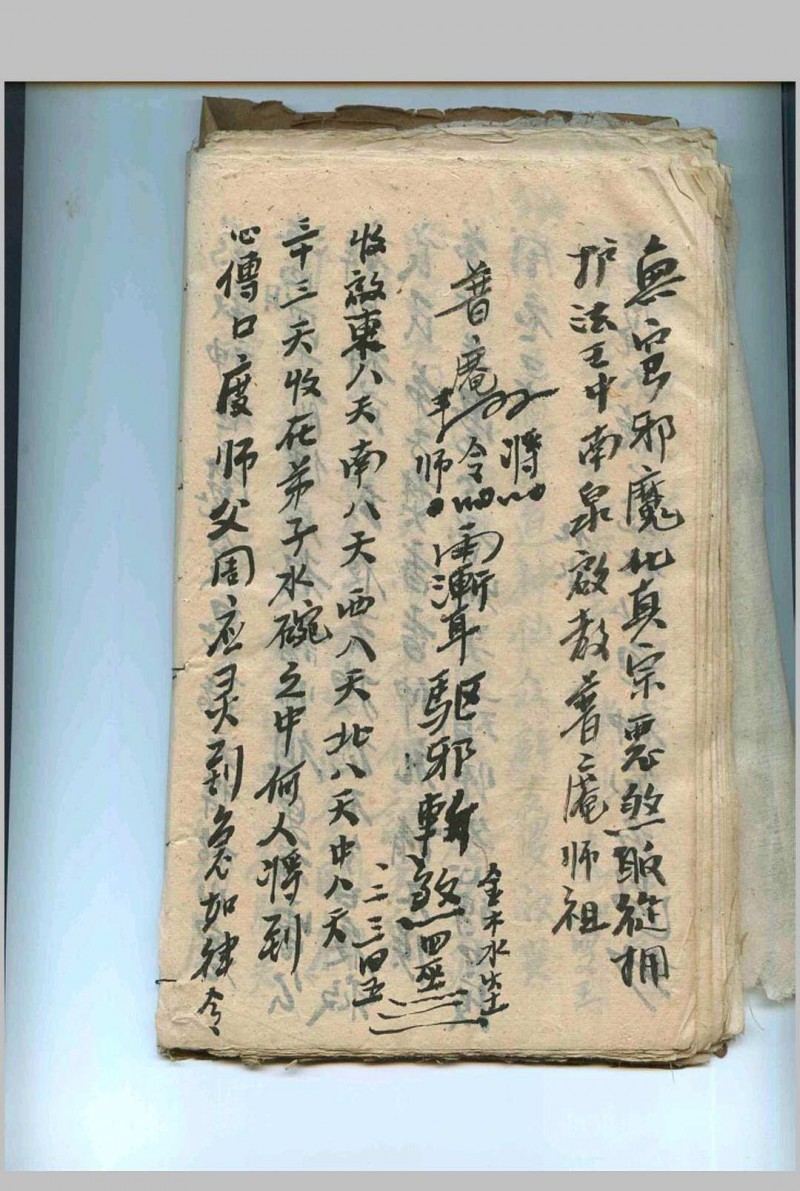 無宫邪魔化真宗惡煞皈筵拥
护法王中南泉啟教普庵师祖
普庵
将
令
师
雨漸耳驱邪斬煞四
金木水火土
一二三四五
收啟東八天南八天西八天北八天中八天
三十三天收在弟子水碗之中何人将到
心傳口度师父周应灵到急如律令